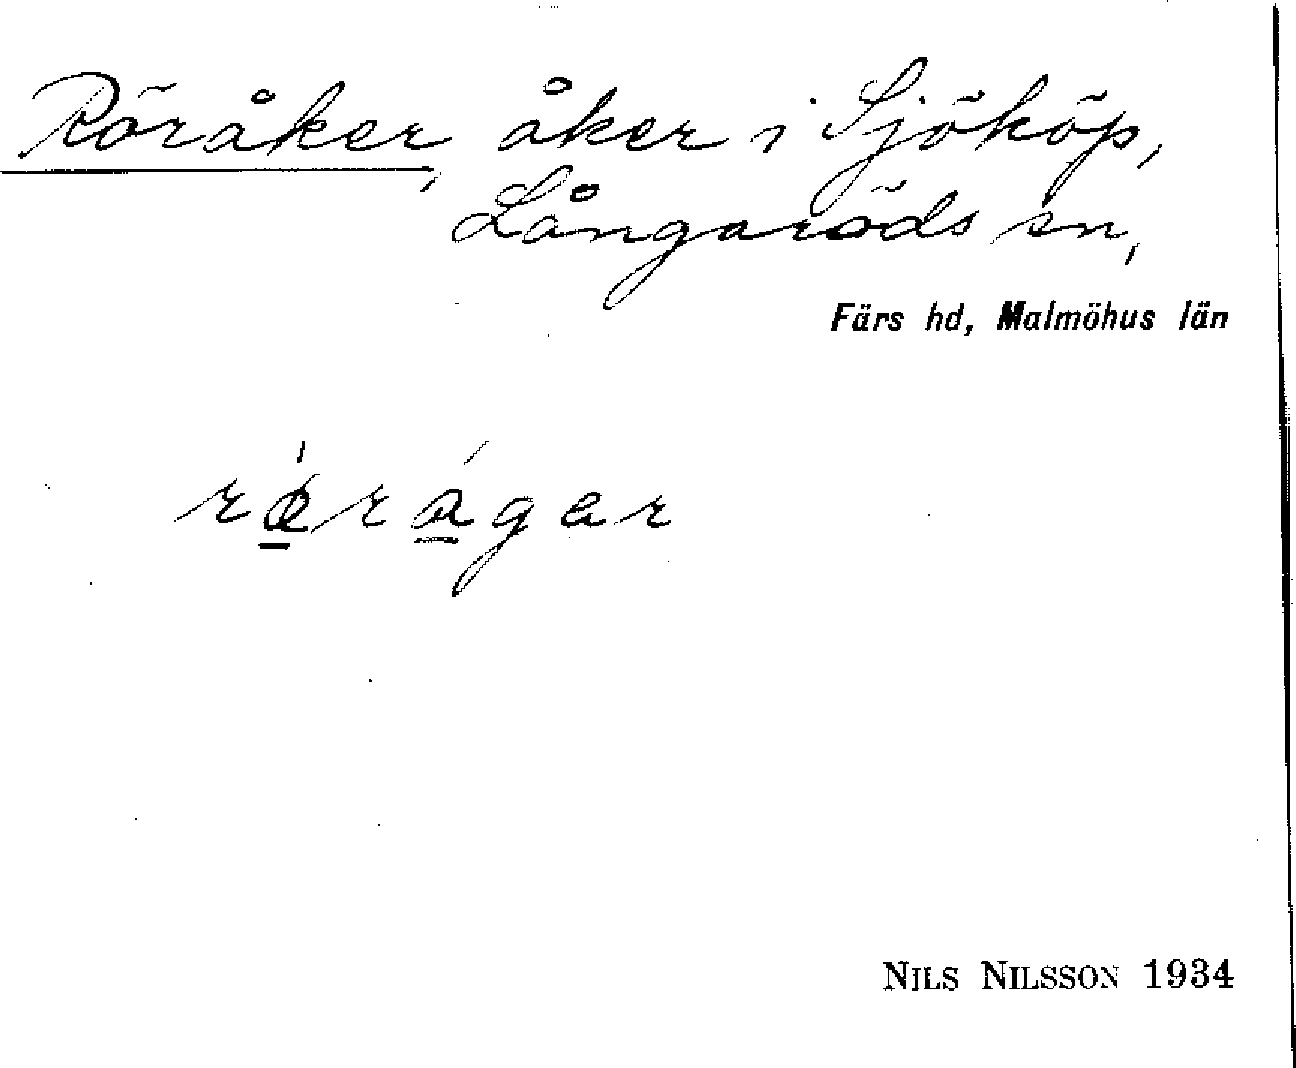 Röråker, åker i Sjököp,
Långaröds sn,
Färs hd, Malmöhus län
rǿ̱rá̱gar
NILS NILSSON 1934